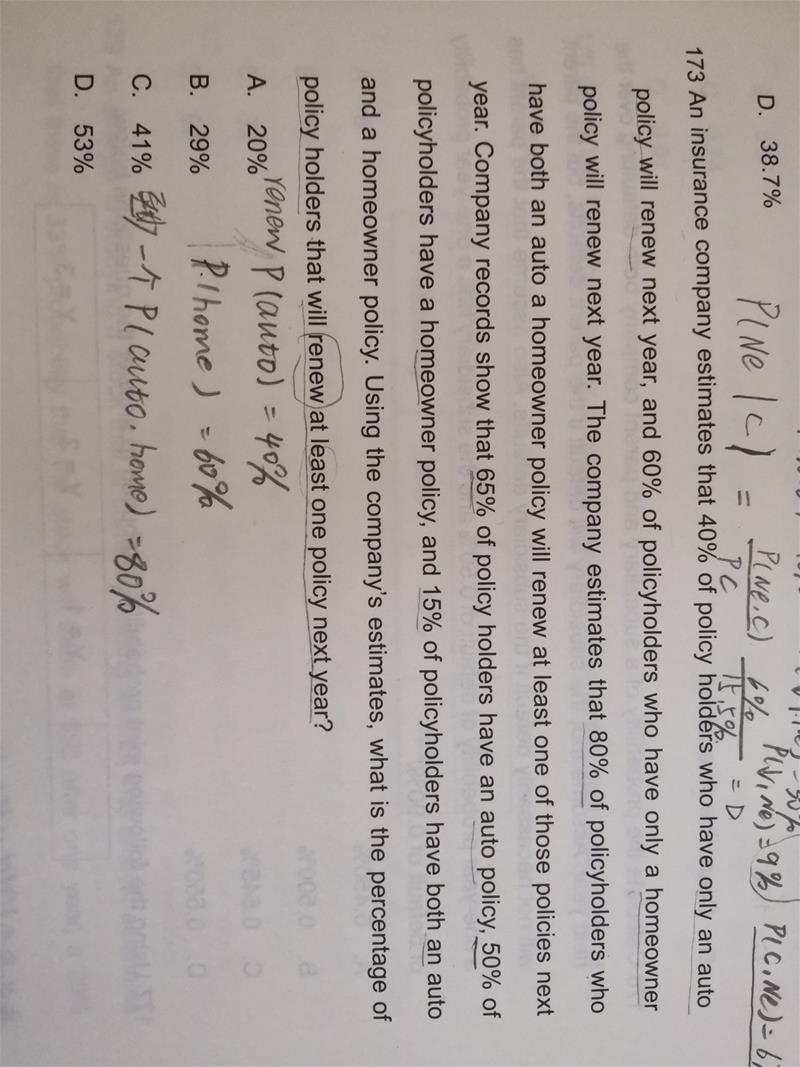 D. 38.7%
P(Ne|C) = P(Ne,C) / PC 6% / 15.5% = D
P(N,Ne)=9% P(C,Ne)=6%
173 An insurance company estimates that 40% of policy holders who have only an auto
policy will renew next year, and 60% of policyholders who have only a homeowner
policy will renew next year. The company estimates that 80% of policyholders who
have both an auto a homeowner policy will renew at least one of those policies next
year. Company records show that 65% of policy holders have an auto policy, 50% of
policyholders have a homeowner policy, and 15% of policyholders have both an auto
and a homeowner policy. Using the company's estimates, what is the percentage of
policy holders that will renew at least one policy next year?
A. 20% renew P(auto) = 40%
B. 29% P(home) = 60%
C. 41% 一个 P(auto.home) = 80%
D. 53%